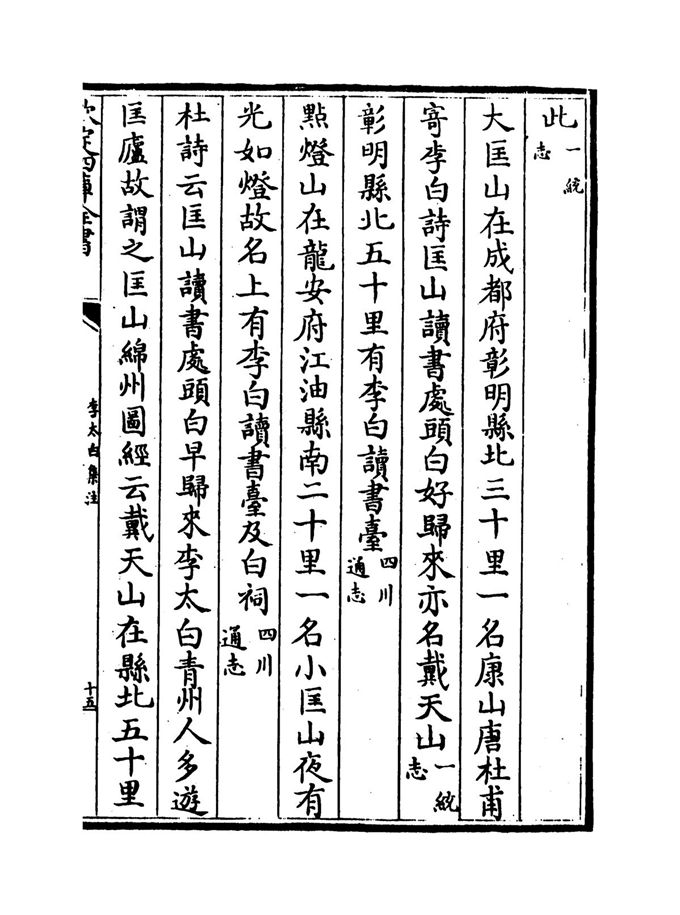 此一統志
大匡山在成都府彰明縣北三十里一名康山唐杜甫
寄李白詩匡山讀書處頭白好歸來亦名戴天山一統志
彰明縣北五十里有李白讀書臺四川通志
點燈山在龍安府江油縣南二十里一名小匡山夜有
光如燈故名上有李白讀書臺及白祠四川通志
杜詩云匡山讀書處頭白早歸來李太白青州人多遊
匡廬故謂之匡山綿州圖經云戴天山在縣北五十里
欽定四庫全書
李太白集注
十五